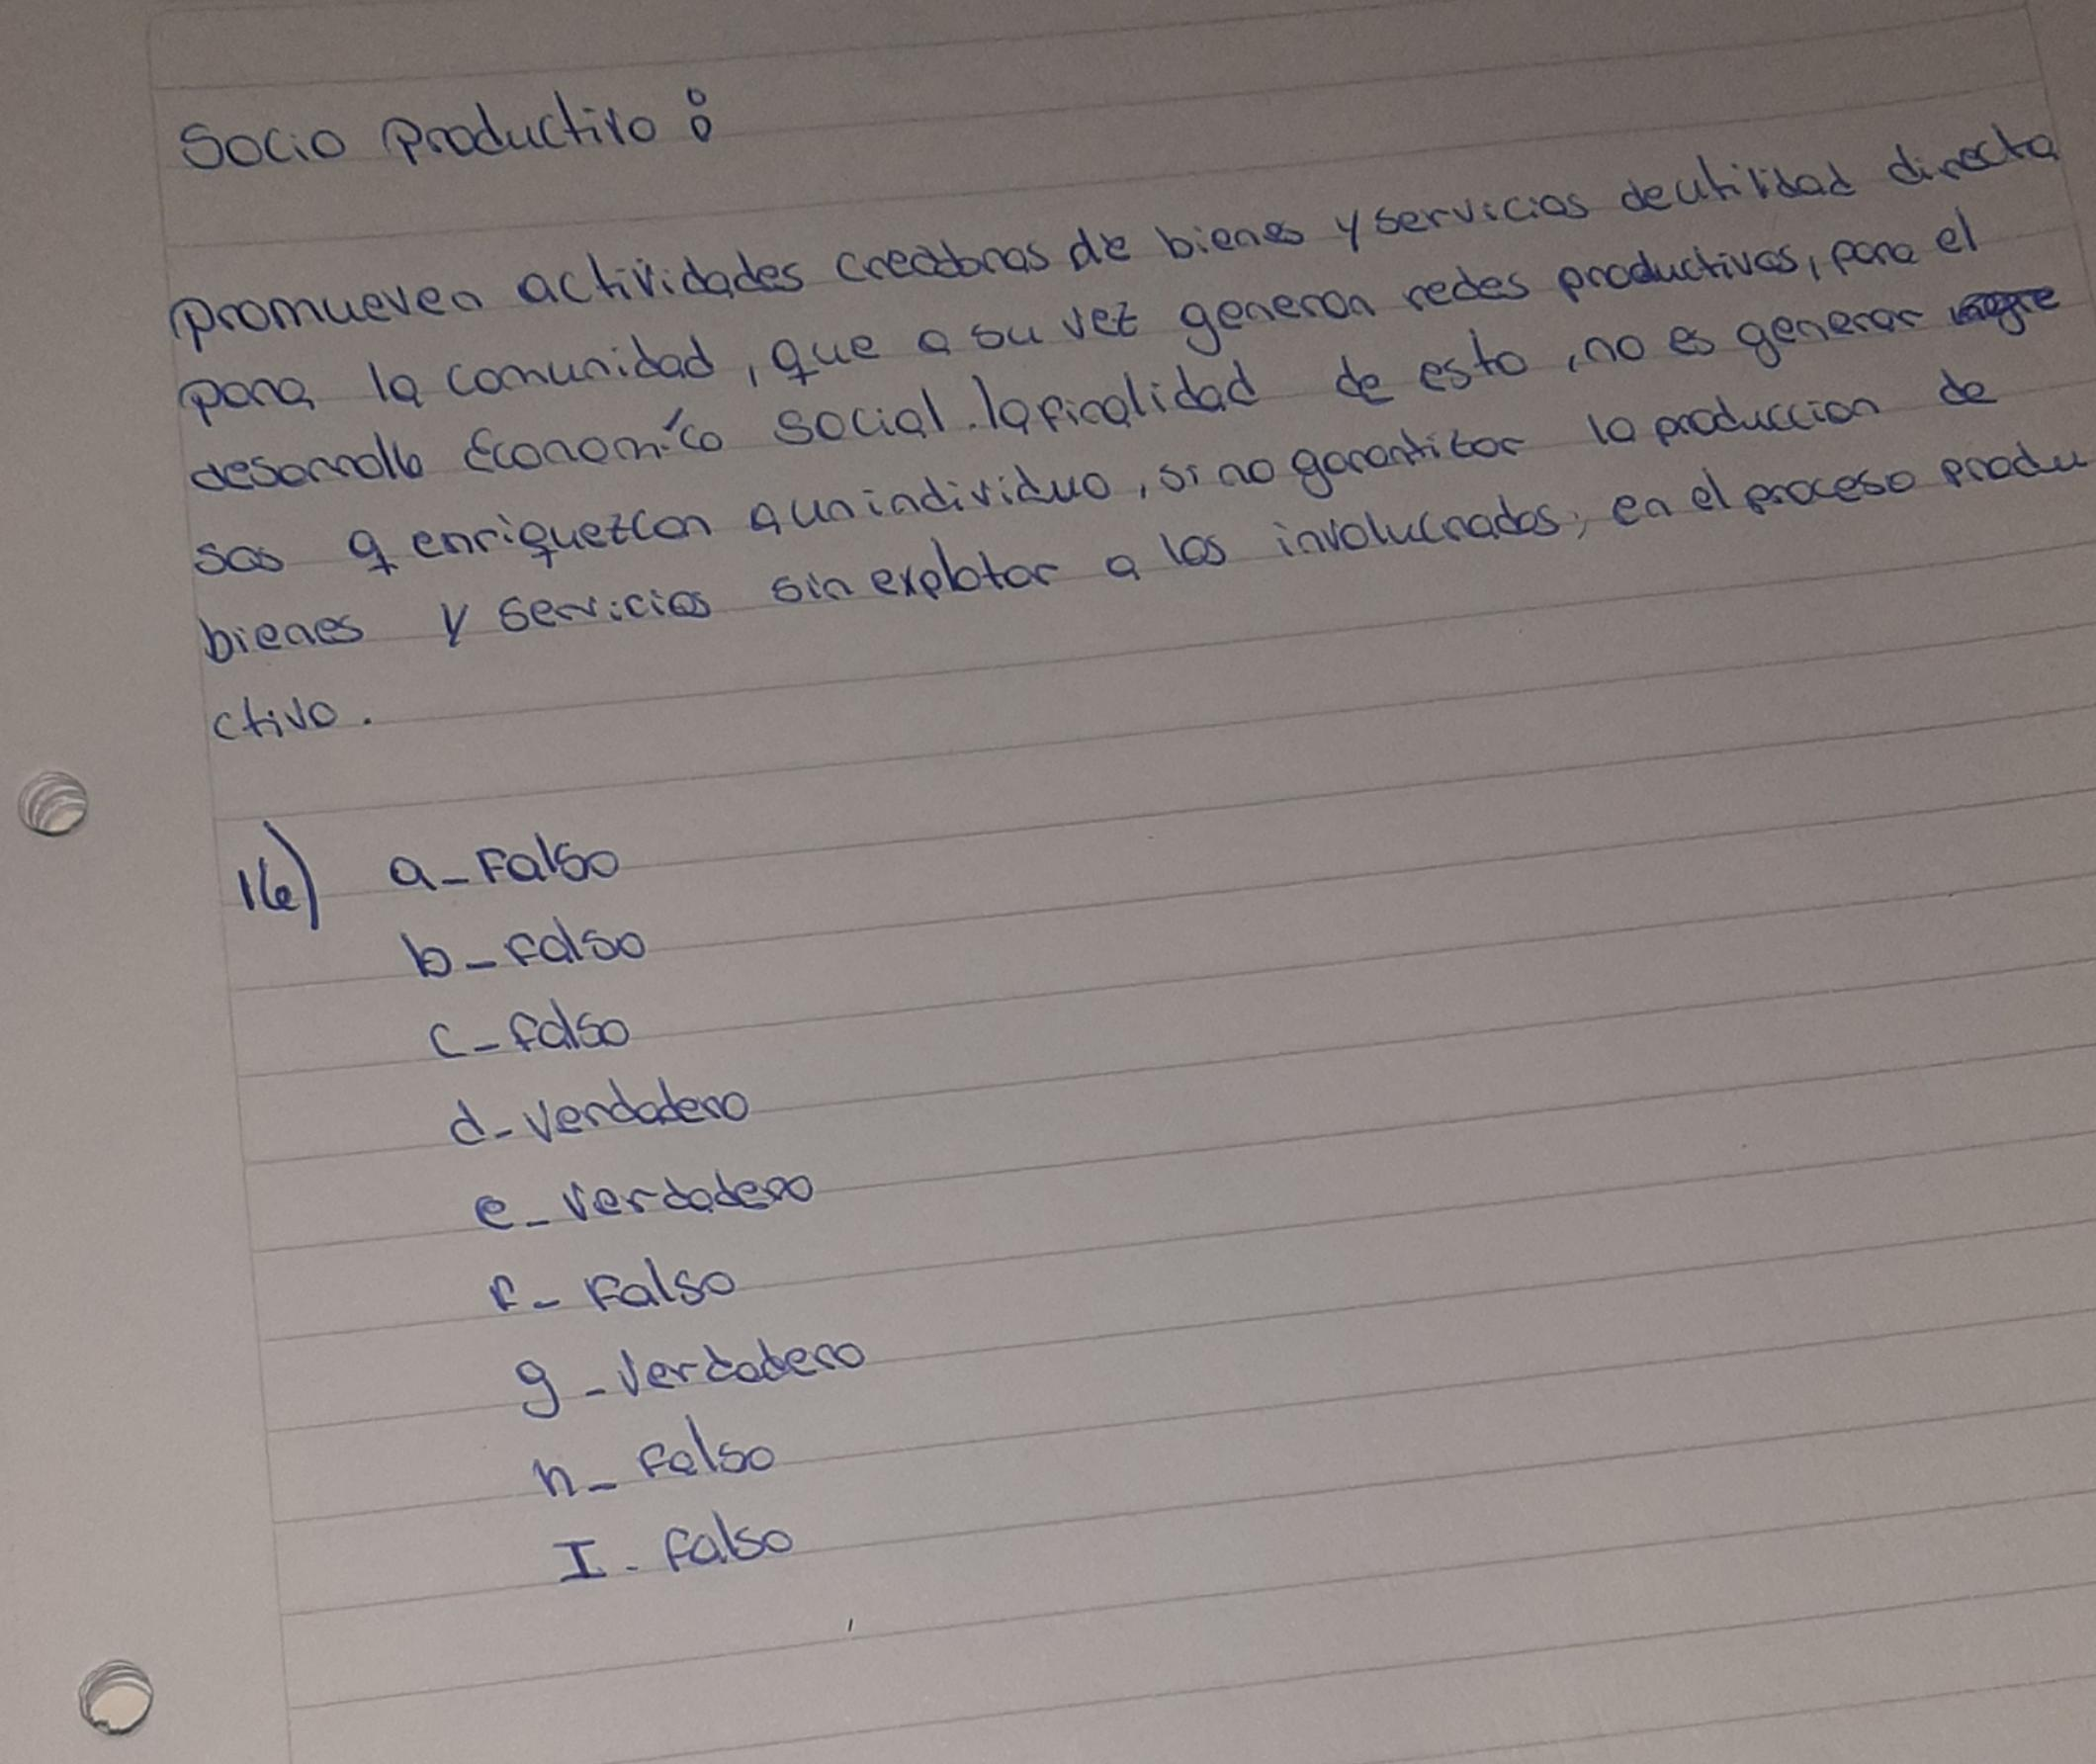 Socio Productivo:
promueven actividades creadoras de bienes y servicios de utilidad directa
para la comunidad, que a su vez generan redes productivas, para el
desarrollo Económico social. la finalidad de esto, no es generar ingre
sos q enriquezcan a un individuo, si no garantizar la produccion de
bienes y servicios sin explotar a los involucrados, en el proceso produ
ctivo.
16) a_ Falso
b_ falso
c_ falso
d_ verdadero
e_ verdadero
f_ Falso
g_ verdadero
h_ Falso
I. falso